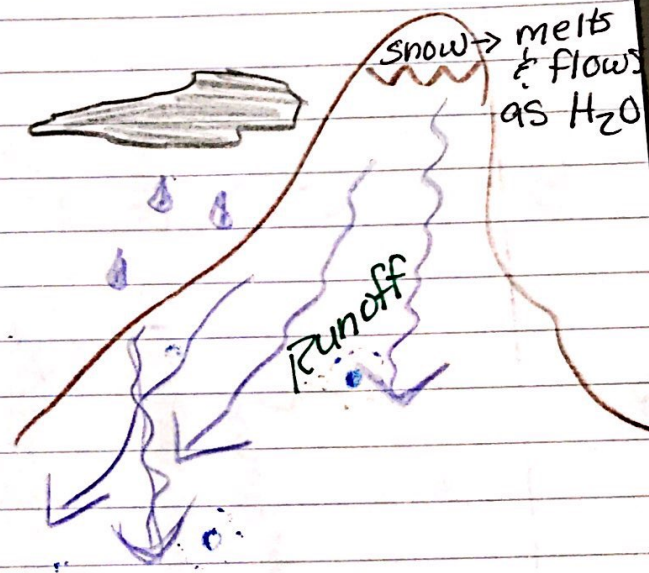 snow → melts
& flows
as H₂O
Runoff